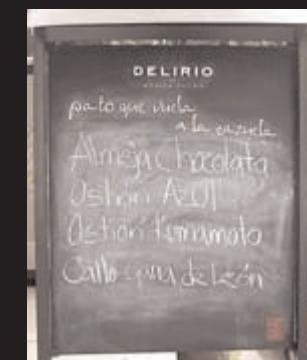 DELIRIO
pato que vuela
a la cazuela
Almeja Chocolata
Ostión Azul
Ostión Kumamoto
Callo garra de león